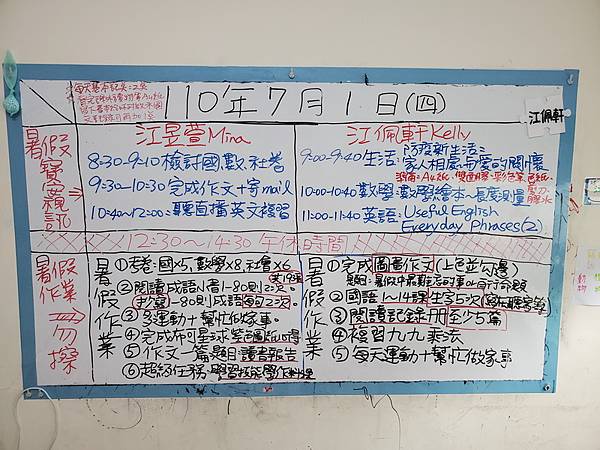 110年7月1日(四)
江佩軒
暑假寶寶視訊
江昱萱Mina
8:30-9:10檢討國、數、社卷
9:30-10:30完成作文+寄mail
10:40-12:00:聽直播英文複習
江佩軒Kelly
9:00-9:40生活:防疫新生活:
家人相處與愛的關懷
10:00-10:40數學:數學繪本~長度測量
11:00-11:40英語:Useful English
Everyday Phrases(2)
12:30~14:30午休時間
暑假作業勿操
暑假作業
①考卷:國x5、數學x8、社會x6
②閱讀成語小書1-80則2次。
抄寫1-80則成語每句2次。
③多運動+幫忙做家事。
⑤作文一篇題目:讀書報告
⑥超級任務:學習技能
暑假作業
①完成圖畫作文(上色並勾邊)
②國語1~14課生字5次
③閱讀記錄冊至少5篇
④複習九九乘法
⑤每天運動+幫忙做家事